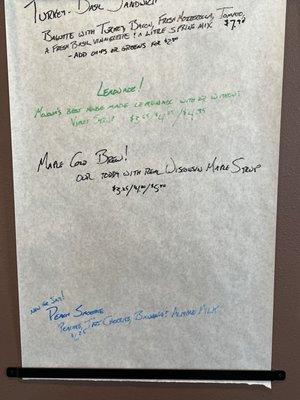 Turkey-Basil Sandwich
Baguette with Turkey, Bacon, Fresh Mozzarella, Tomato,
a Fresh Basil Vinaigrette & a little Spring Mix $7.95
- Add chips or greens for $2.00
Lemonade!
best home made lemonade with or without
$3.65/$4.25/$4.95
Maple Cold Brew!
Our toddy with real Wisconsin Maple Syrup
new or so!
Peach Smoothie
Peaches, Tart Cherries, Bananas & Almond Milk